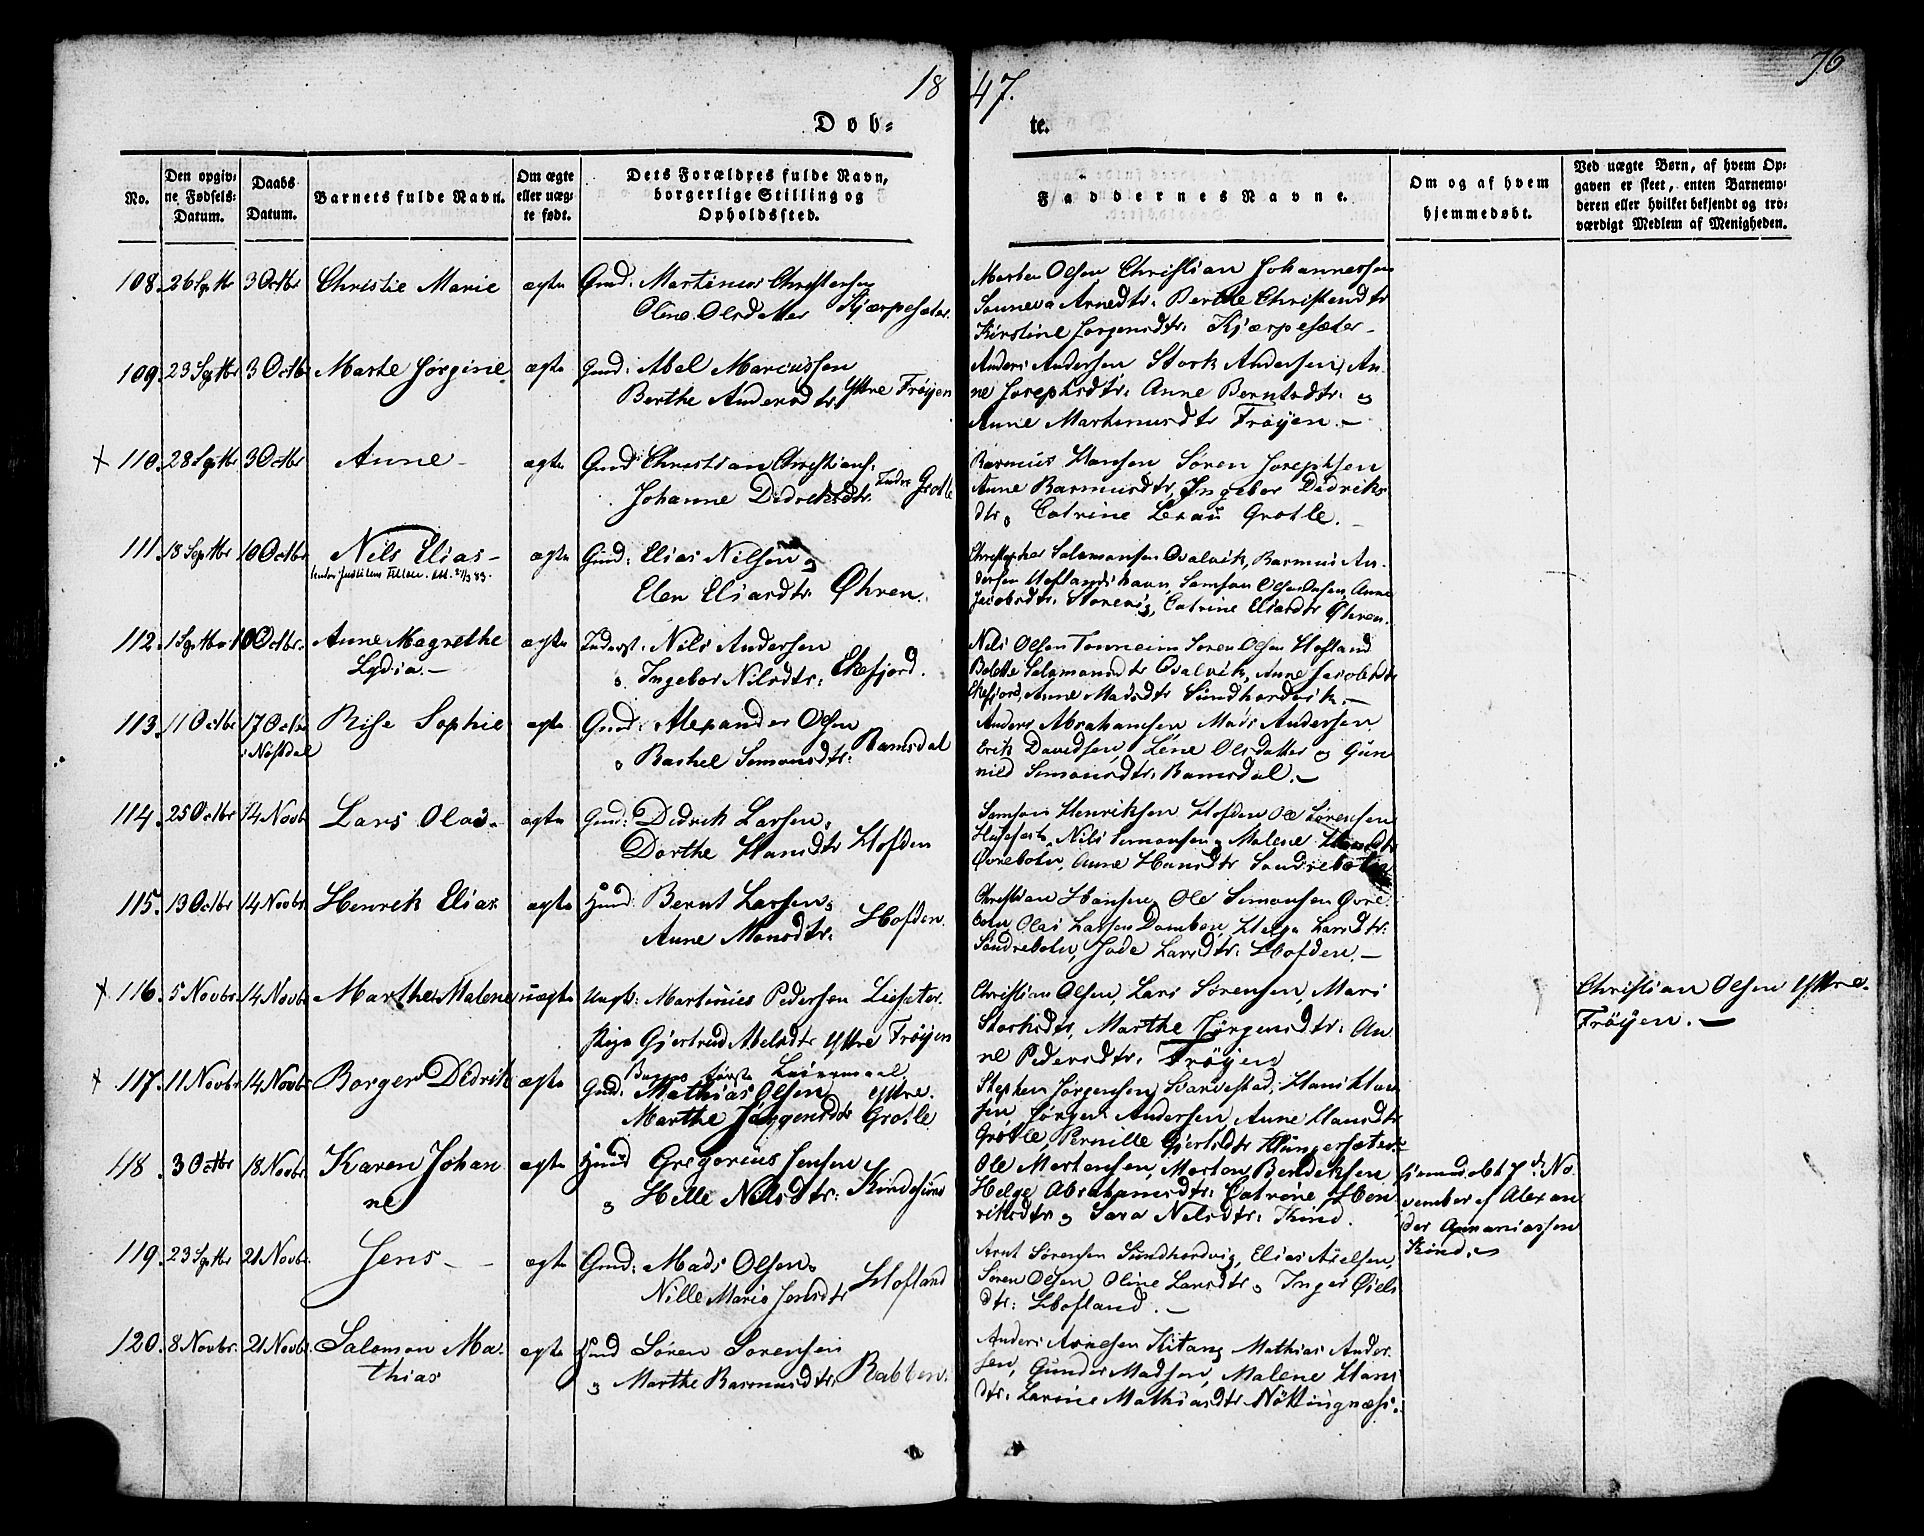 18
47.
76
Døb=
te.
No.
Den opgiv=
ne Fødsels=
Datum.
Daabs
Datum.
Barnets fulde Navn.
Om ægte
eller uæg=
te født.
Dets Forældres fulde Navn,
borgerlige Stilling og
Opholdssted.
Faddernes Navne.
Om og af hvem
hjemmedøbt.
Ved uægte Børn, af hvem Op=
gaven er skeet, enten Barnemo=
deren eller hvilket bekjendt og tro=
værdigt Medlem af Menigheden.
108. 26 Septbr 3 Octbr Christie Marie ægte Gmd: Martinus Christensen
Oline Olsdatter Kjærpesæter.
Morten Olsen Christian Johannessen
Sunneva Arnedtr. Berthe Christendtr
Kirstine Jørgensdtr. Kjærpesæter
109. 23 Septbr 3 Octbr Marte Jørgine ægte Gmd: Abel Marcussen
Berthe Andersdtr Yttre Frøyen
Anders Andersen Stork Andersen, An-
ne Josephsdtr: Anne Berntsdtr: og
Anne Martinusdtr Frøyen.
110. 28 Septbr 3 Octbr Anne ægte Gmd Christian Christians.
Johanne Didriksdtr. Indre Grotle
Rasmus Hansen, Søren Josephsen
Anne Rasmusdtr, Ingebor Didriks
dtr, Catrine Grotle.
111. 18 Septbr 10 Octbr Nils Elias ægte Gmd: Elias Nilsen og
Elen Eliasdtr: Øhren.
Christopher Salamonsen Qvalvik, Rasmus An-
dersen Hoflandshavn, Samson Olsen Anne
Jacobsdtr. Storevig, Catrine Eliasdtr Øhren.
112. 1 Septbr 10 Octbr. Anne Magrethe ægte Inderst. Nils Andersen
Lydia.
og Ingebor Nilsdtr: Ekefjord.
Nils Olsen Tonneim Søren Olsen Hofland
Bolette Salamonsdtr Qvalvik, Anne Jacobsdtr
Ekefjord, Anne Madsdtr Sundhordvik.
113. 11 Octbr 17 Octbr Rise Sophie ægte Gmd: Alexander Olsen
i Nøstdal
og Rachel Simonsdtr: Ramsdal
Anders Abrahamsen Mads Andersen
Erik Davidsen, Lene Olsdatter og Gun
nild Simonsdtr: Ramsdal.
114. 25 Octbr 14 Novb Lars Olai. ægte Gmd: Didrik Larsen,
Dorthe Hansdtr Hofden
Samson Henriksen Hofden Ole Sørensen
Husefest, Nils Simonsen, Malene Hansdtr
Øvrebotn, Anne Hansdtr Søndrebotn
115. 13 Octbr 14 Novbr. Henrik Elias ægte Hmd Bernt Larsen,
Anne Monsdtr. Hofden.
Christian Hansen, Ole Simonsen Øvre
botn, Olai Larsen Domben, Helga Larsdtr:
Søndrebotn, Jade Larsdtr: Hofden.
116. 5 Novbr. 14 Novbr. Marthe Malene uægte Ungk: Martinus Pedersen Liesæter.
Pige Gjertrud Abelsdtr Yttre Frøyen
Begges første Leiermaal
Christian Olsen, Lars Sørensen, Mari
Storksdtr, Marthe Jørgensdtr: An
ne Pedersdtr: Frøyen
Christian Olsen Yttre-
Frøyen.
117. 11 Novbr. 14 Novbr. Borger Didrik ægte Gmd: Mathias Olsen Yttre.
Marthe Jørgensdtr Grotle.
Stephen Jørgensen, Svarvestad, Hans Han
sen, Jørgen Andersen, Anne Hansdtr
Grotle, Pernille Gjertsdtr Klungersæter.
118 3 Octbr 18 Novbr. Karen Johan ægte Hmd Gregorius Jensen
ne
og Helle Nilsdtr: Kindsund
Ole Mortensen, Morten Bendiksen
Helge Abrahamsdtr: Catrine Hen
riksdtr og Sara Nilsdtr: Kind.
hjemmedøbt 7d: No
vember af Alexan
der Ananiassen
Kind.
119. 23 Septbr 21 Novbr. Jens ægte Gmd: Mads Olsen,
Nille Marie Jensdtr Hofland
Arnt Sørensen Sundhordvig, Elias Axelsen,
Søren Olsen Oline Larsdtr, Inger Niels
dtr: Hofland.
120. 8 Novbr. 21 Novbr. Salomon Ma- ægte Hmd Søren Sørensen
thias
og Marthe Rasmusdtr. Rabben.
Anders Arnesen Kitang Mathias Ander
sen, Gunder Madsen, Malene Hans
dtr: Larine Mathiasdtr Nøttingnæss.